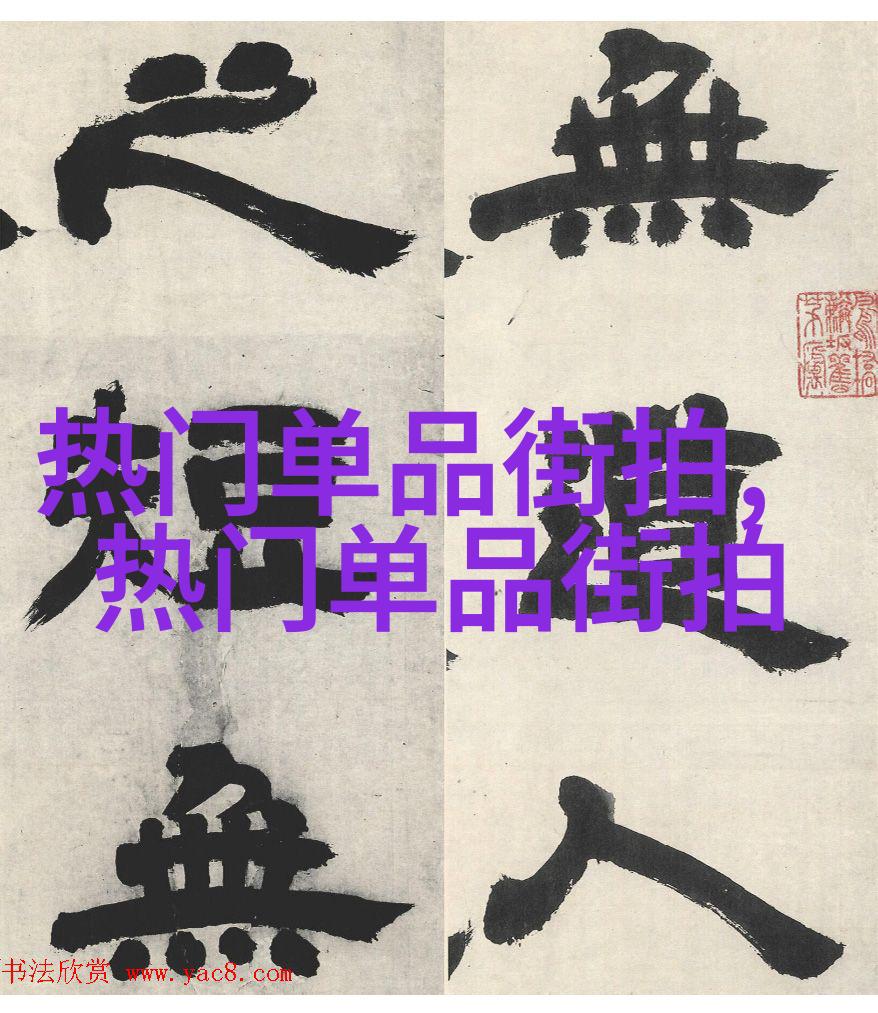 無道人
之短無
热门单品街拍,
热门单品街拍
书法欣赏 www.yac8.com